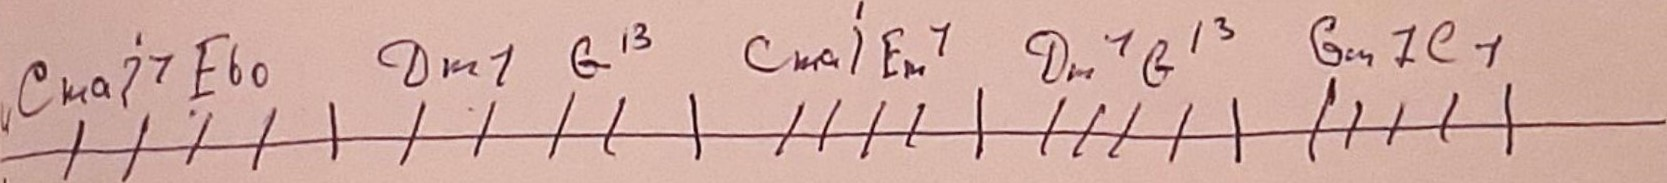 Cmaj7 Ebo Dm7 G13 Cmaj Em7 Dm7 G13 Gm7 C7